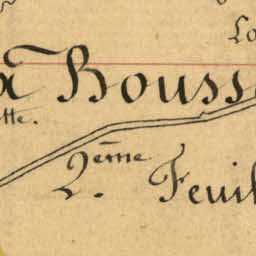 Lo
a Bouss
tte.
2ème Feuil